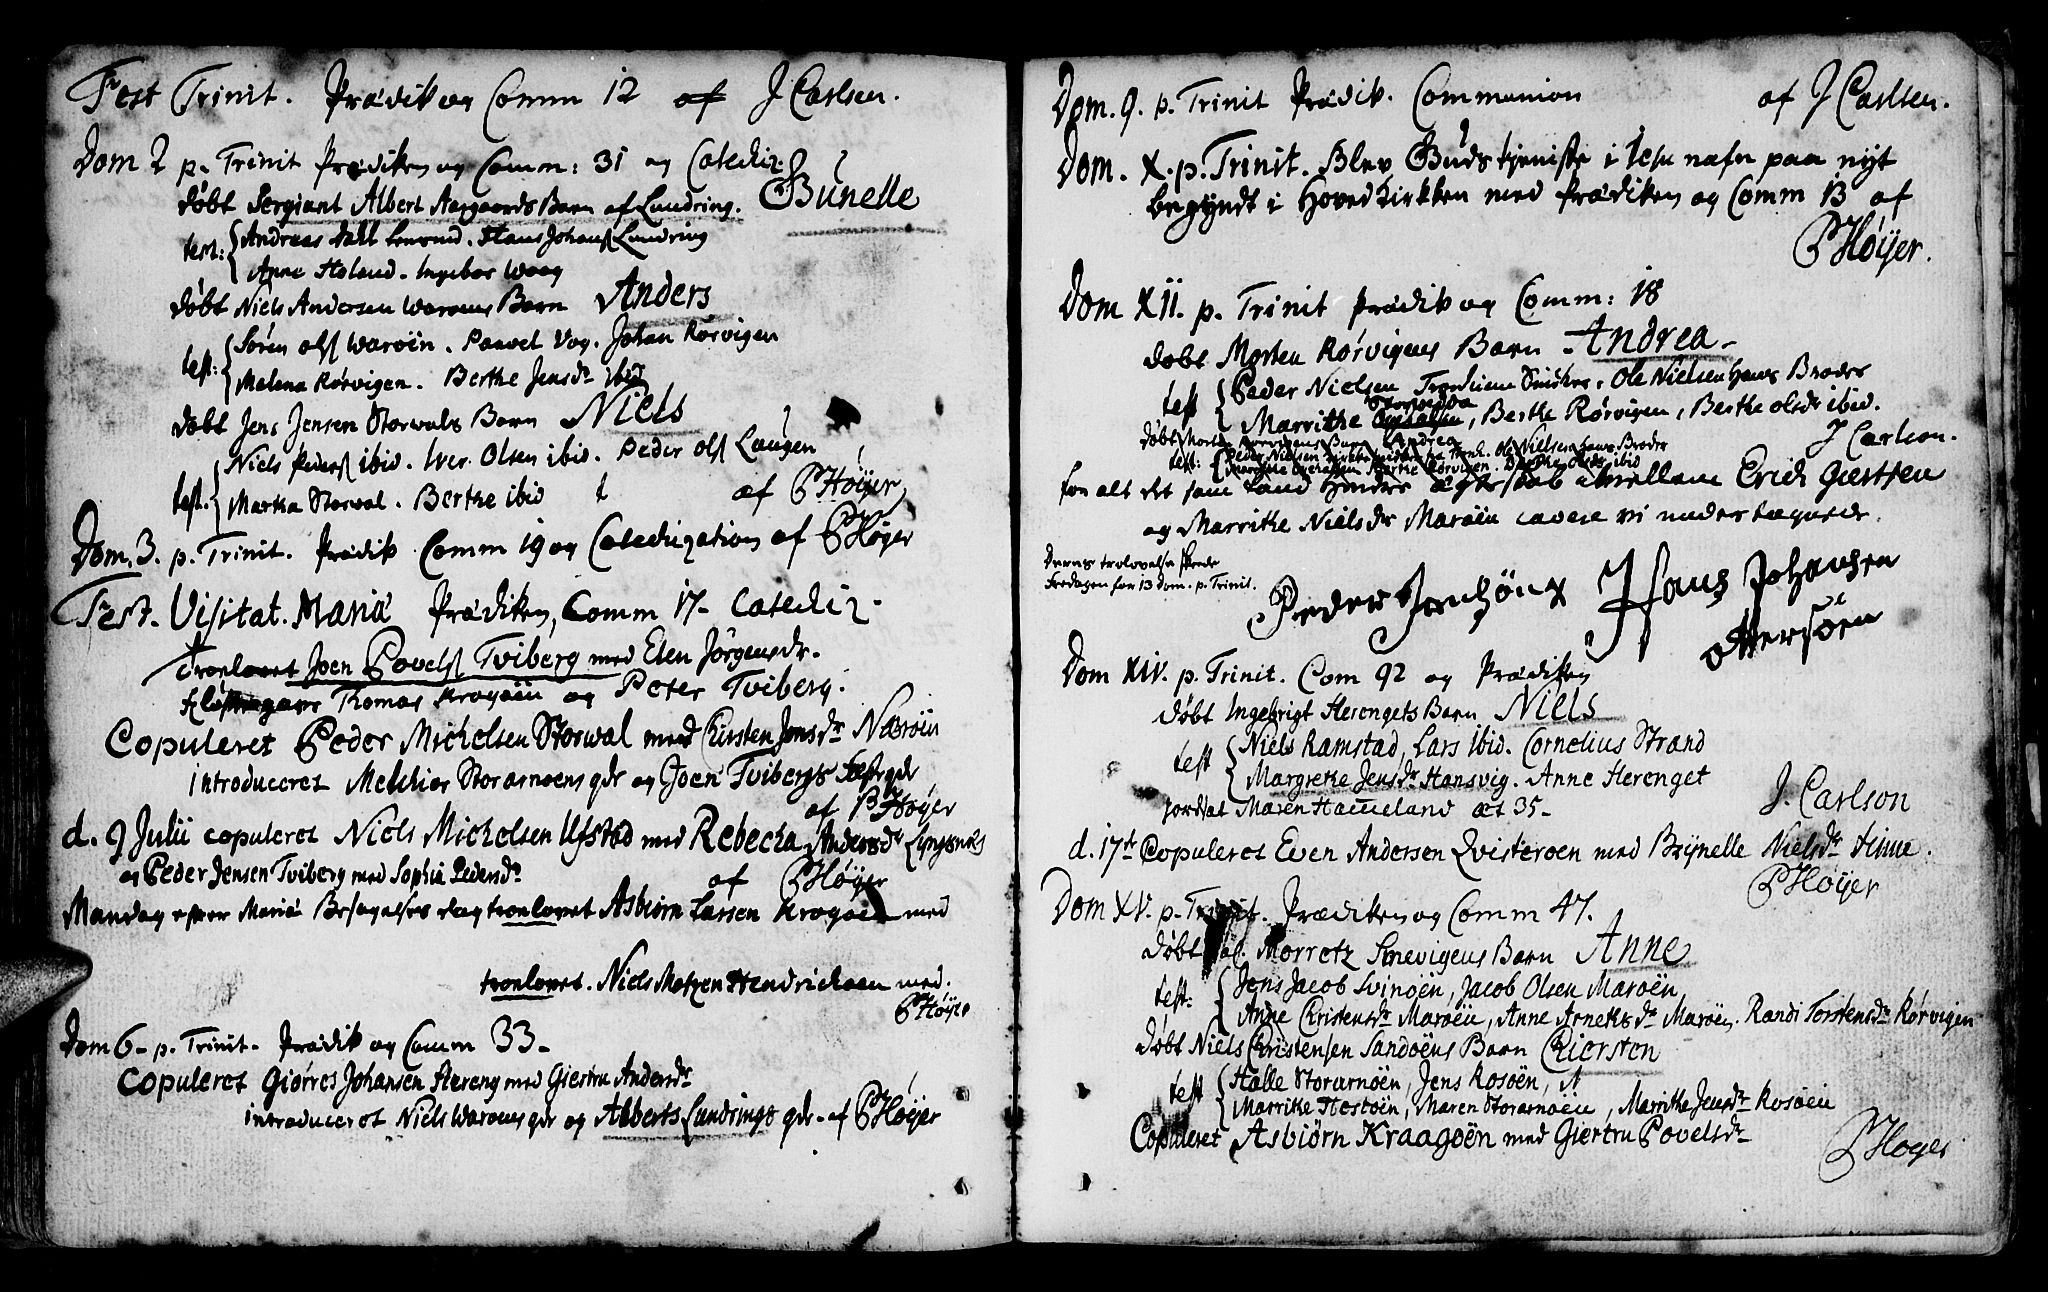 Fest Trinit. Prædik og Comm 12 af J Carlsen.
Dom 2 p. Trinit Prædiken og Comm: 31 og Catechiz:
døbt Sergiant Albert Aasgaards Barn af Lundring. Bunelle
test: Andreas dahl Lensmd. Hans Johans Lundring
Anne Holand. Ingebor Waag
døbt Niels Andersen Waroens Barn Anders
test: Søren ols Waroin. Paavel Vog. Johan Rørvigen
Malena Rørvigen. Berthe Jensdr ibid
døbt Jens Jensen Storwals Barn Niels
test. Niels Peders ibid. Iver Olsen ibid. Peder ols Laugen
Martha Storwal. Berthe ibid af PHøyer
Dom. 3. p. Trinit. Prædik Comm 19 og Catechization af PHøyer
Fest. Visitat. Mariæ Prædiken, Comm 17- Catechiz-
Troelovet Joen Povels Tviberg med Elen Jørgensdr.
Thomas Krogøen og Peter Tviberg.
Copuleret Peder Michelsen Storwal med Kirsten Jensdr Nærøin
introduceret Melchior Storarnøens qdr og Joen Tvibergs qdr
af PHøyer
d. 9 Julii copuleret Niels Michelsen Ufstad med Rebecka Andersdr Lyngsnes
og Peder Jensen Tviberg med Sophia Pedersdr
af PHøyer
Mandag efter Mariæ Besøgelses dag troelovet Asbiørn Larsen Krogøen med
troelovet. Niels Matzen Hendrichsen med.
PHøyer
Dom 6- p. Trinit- Prædik og Comm 33-
Copuleret Giørres Johansen Hereng med Giertru Andersdr
introduceret Niels Waroens qdr og Alberts Lundrings qdr- af PHøyer
Dom. 9. p. Trinit Prædik. Communion af J Carlsen.
Dom. X. p. Trinit. Blev Guds tjeniste i Jesu nafn paa nyt
begyndt i Hoved Kirkken med Prædiken og Comm 13 af
PHøyer.
Dom XII. p. Trinit Prædik og Comm: 18
døbt Morten Rørvigens Barn Andrea-
test Peder Nielsen Trondhiem, Ole Nielsen Hans Broder
Marrithe, Berthe Rørvigen, Berthe olsdr ibid.
J Carlson.
døbt Morten Rørvigens Barn Andrea
test: Peder Nielsen. Ole Nielsen Hans Broder
Berthe Rørvigen. Berthe olsdr ibid
for alt det som kand Hindre ægteskab imellem Erich Giertsen
og Marrithe Nielsdr Marøen cavere vi undertegnede.
Deres trolovelse skede
Fredagen for 13 Dom. p. Trinit.
Hans Johansen
ottersøen
Dom XIV. p. Trinit. Com 92 og Prædiken
døbt Ingebrigt Herengets Barn Niels
test Niels Ramstad, Lars ibid. Cornelius Strand
Margrethe Jensdr Hansvig. Anne Herenget
Jordsat Maren Hameland æt 35-
J. Carlson
d. 17de Copuleret Even Andersen Qvisteroen med Brynelle Nielsdr Finne.
PHøyer
Dom XV. p. Trinit. Prædiken og Comm 47.
døbt Morretz Smevigens Barn Anne
test: Jens Jacob Svinøen, Jacob Olsen Marøen,
Anne Christensdr Marøen, Anne Arnethsdr Marøen. Randi Torstensdr Rørvigen
døbt Niels Christensen Sandøens Barn Chiersten
test Halle Storarnøen, Jens Rosøen,
Marrithe Hestøen, Maren Storarnøen, Marrithe Jensdr Rosøen
Copuleret Asbiørn Kraagøen med Giertru Povelsdr
PHøyer